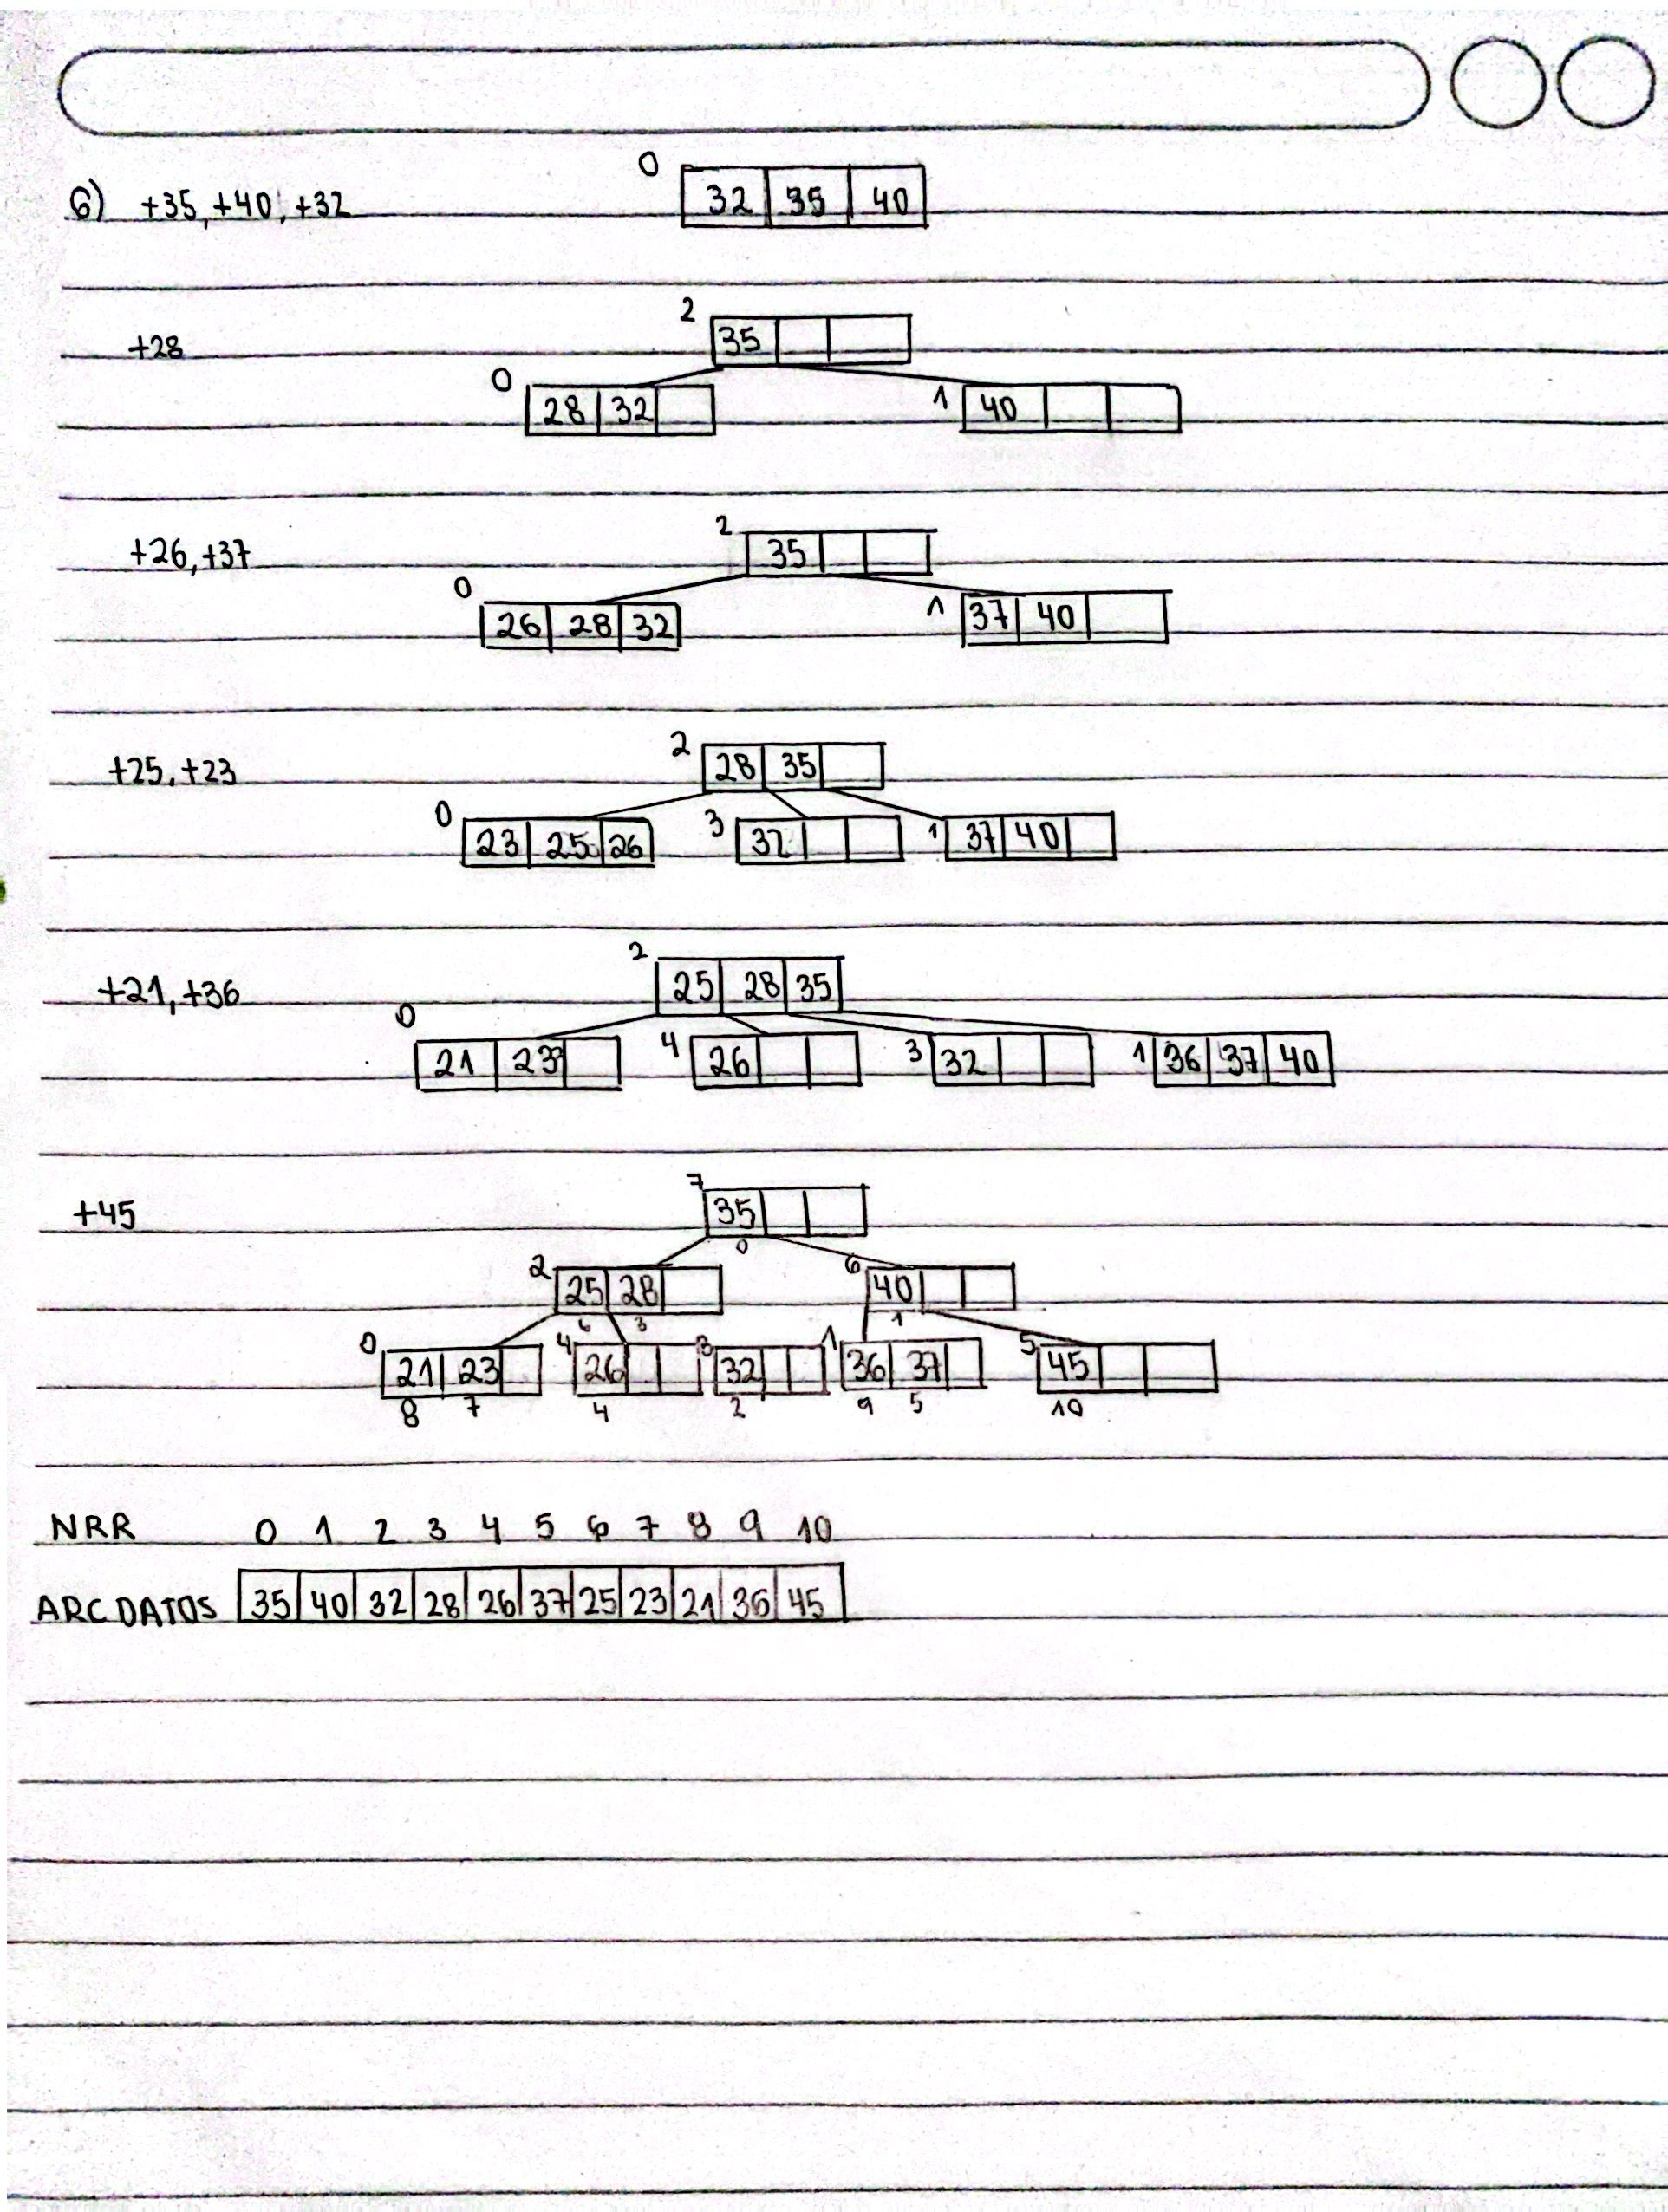 0
6) +35, +40, +32 32 35 40
2
+28 35
0 28 32 1 40
2
+26, +37 35
0 26 28 32 1 37 40
2
+25, +23 28 35
0 23 25 26 3 32 1 37 40
2
+21, +36 25 28 35
0 21 23 4 26 3 32 1 36 37 40
7
+45 35
0
2 25 28 6 40
6 3 1
0 21 23 4 26 3 32 1 36 37 5 45
8 7 4 2 9 5 10
NRR 0 1 2 3 4 5 6 7 8 9 10
ARC DATOS 35 40 32 28 26 37 25 23 21 36 45